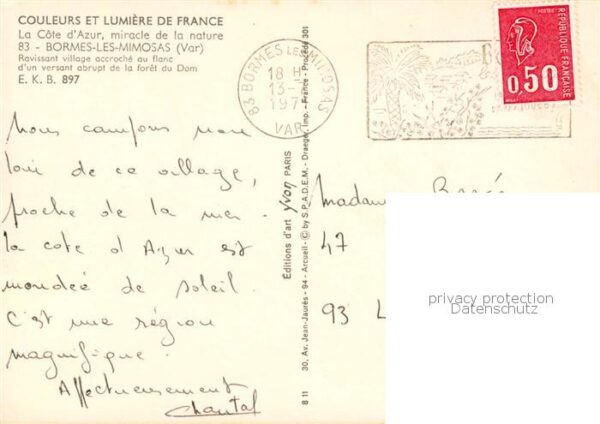 COULEURS ET LUMIÈRE DE FRANCE
La Côte d'Azur, miracle de la nature
83 - BORMES-LES-MIMOSAS (Var)
Ravissant village accroché au flanc
d'un versant abrupt de la forêt du Dom
E. K. B. 897
83 BORMES LES MIMOSAS
18 H
13 -
197
VAR
RÉPUBLIQUE FRANÇAISE
0,50
Nous campons non
loin de ce village,
proche de la mer.
la cote d Azur est
inondée de soleil.
C'est une région
magnifique.
Affectueusement
Chantal
Éditions d'art Yvon PARIS
30, Av. Jean-Jaurès - 94 - Arcueil - © by S.P.A.D.E.M. - Draeger, imp. - France - Procédé 301
B 11
Madame
47
93 L
privacy protection
Datenschutz